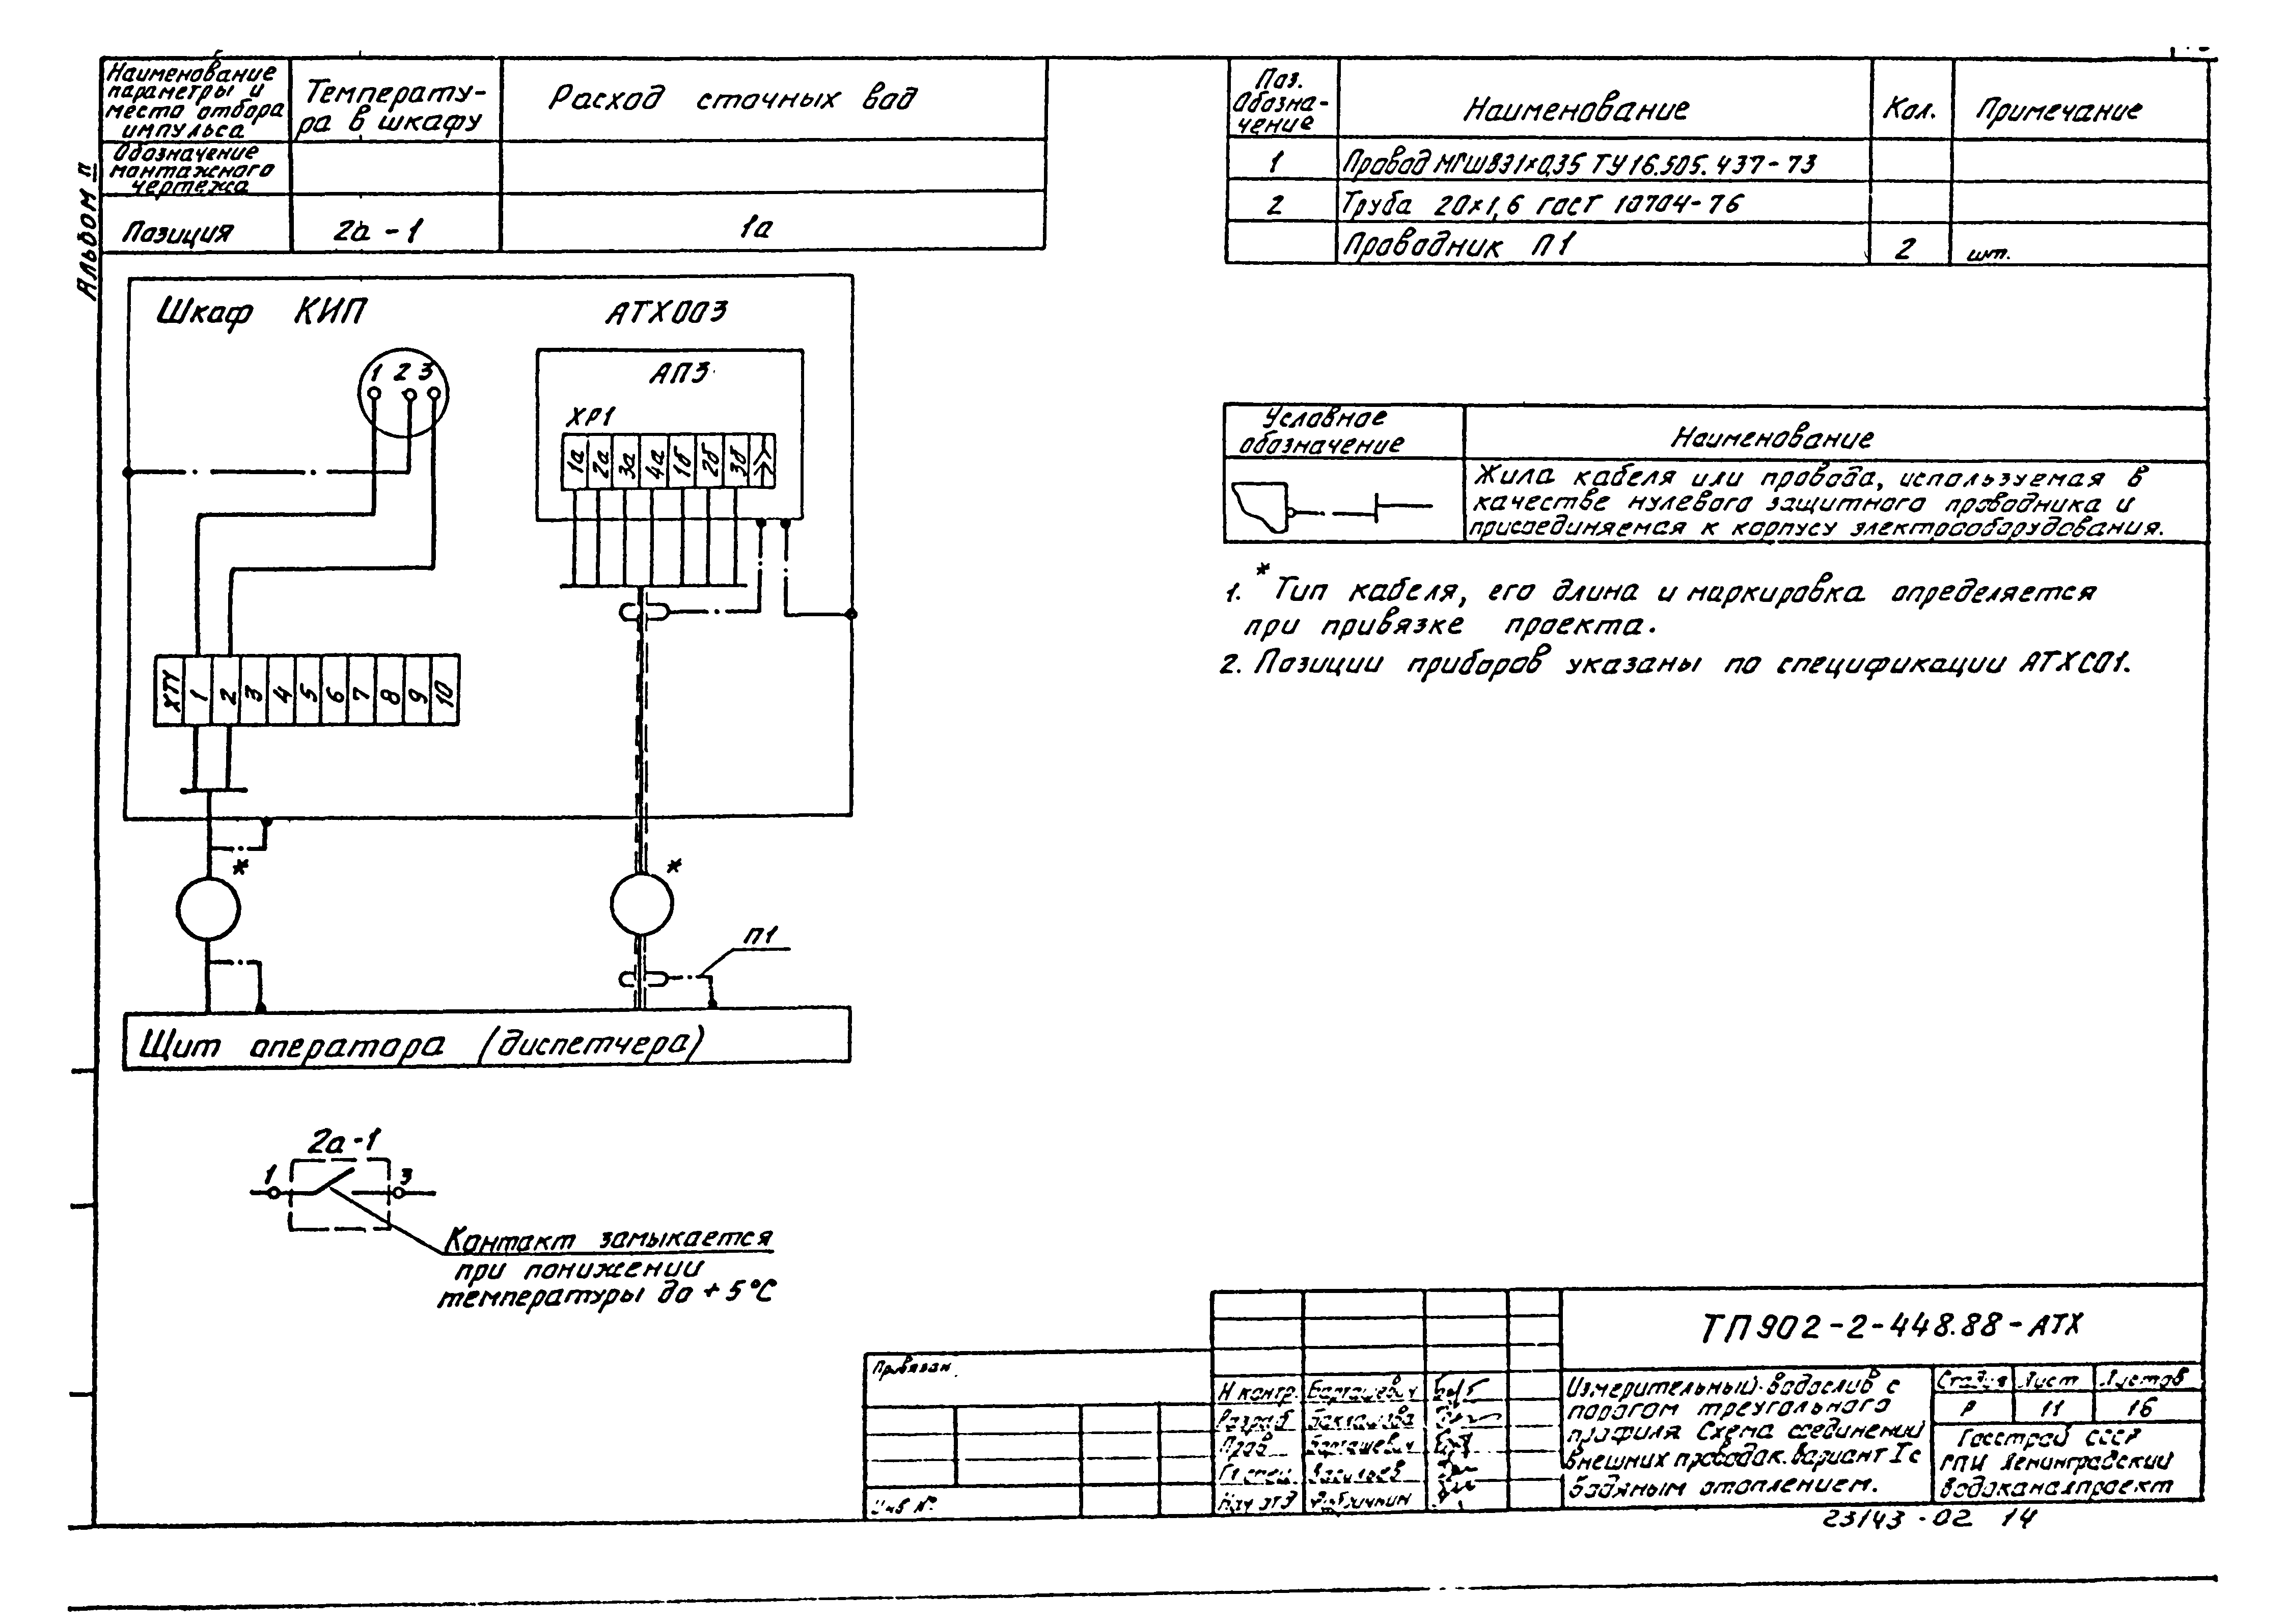 Альбом II
Наименование
параметры и
место отбора
импульса
Температу-
ра в шкафу
Расход сточных вод
Обозначение
монтажного
чертежа
Позиция
2а-1
1а
Поз.
Обозна-
чение
Наименование
Кол.
Примечание
1
Провод МГШВЭ1×0,35 ТУ16.505.437-73
2
Труба 20×1,6 ГОСТ 10704-76
Проводник П1
2
шт.
Шкаф КИП
АТХ003
1 2 3
АП3
ХР1
1а 2а 3а 4а 1б 2б 3б
ХТ1 1 2 3 4 5 6 7 8 9 10
*
*
П1
Щит оператора (диспетчера)
2а-1
1
3
Контакт замыкается
при понижении
температуры до +5°С
Условное
обозначение
Наименование
Жила кабеля или провода, используемая в
качестве нулевого защитного проводника и
присоединяемая к корпусу электрооборудования.
1. * Тип кабеля, его длина и маркировка определяется
при привязке проекта.
2. Позиции приборов указаны по спецификации АТХС01.
ТП902-2-448.88-АТХ
Привязан
Инв №
Н контр. Барташевич
Разраб Баклашова
Пров Барташевич
Гл спец. Васильев
Нач отд
Измерительный водослив с
порогом треугольного
профиля Схема соединений
внешних проводок. Вариант I с
водяным отоплением.
Стадия Лист Листов
Р 11 16
Госстрой СССР
ГПИ Ленинградский
Водоканалпроект
23143-02 14